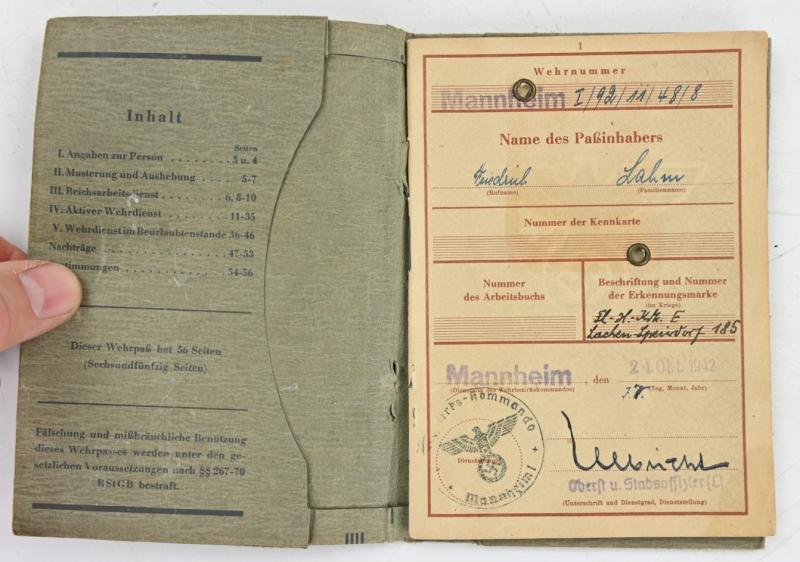 Inhalt
Seiten
I. Angaben zur Person . . . . . . . . 3 u. 4
II. Musterung und Aushebung . . . . 5-7
III. Reichsarbeitsdienst . . . . . . . . 6, 8-10
IV. Aktiver Wehrdienst . . . . . . . 11-35
V. Wehrdienst im Beurlaubtenstande 36-46
Nachträge . . . . . . . . . . . . . 47-53
stimmungen . . . . . . . . . . . 54-56
Dieser Wehrpaß hat 56 Seiten
(Sechsundfünfzig Seiten)
Fälschung und mißbräuchliche Benutzung
dieses Wehrpasses werden unter den ge-
setzlichen Voraussetzungen nach §§ 267-70
RStGB bestraft.
1
Wehrnummer
Mannheim I/92/11/48/8
Name des Paßinhabers
Friedrich Lahm
(Rufname) (Familienname)
Nummer der Kennkarte
Nummer
des Arbeitsbuchs
Beschriftung und Nummer
der Erkennungsmarke
(im Kriege)
Lachen-Speierdorf 185
Mannheim, den 24. Okt. 1942
(Dienststelle des Wehrbezirkskommandos) (Tag, Monat, Jahr)
I.V.
irks-Kommando
Mannheim I
Ulbricht
Oberst u. Stabsoffizier (L)
(Unterschrift und Dienstgrad, Dienststellung)